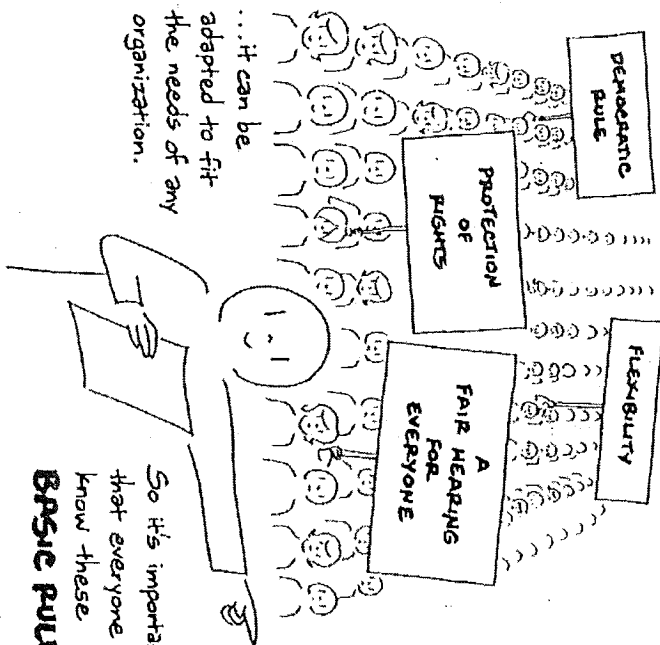 DEMOCRATIC
RULE
PROTECTION
OF
RIGHTS
FLEXIBILITY
A
FAIR HEARING
FOR
EVERYONE
...it can be
adapted to fit
the needs of any
organization.
So it's importa
that everyone
know these
BASIC RUL